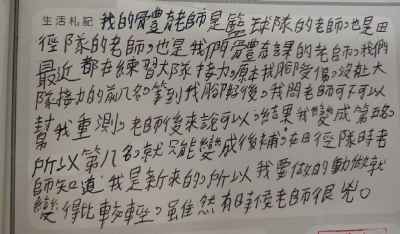 生活札記 我的體育老師是籃球隊的老師。也是田
徑隊的老師。也是我們體育課的老師。我們
最近都在練習大隊接力。原本我腳受傷。沒進大
隊接力的前八名。等到我腳好後。我問老師可不可以
幫我重測。老師後來說可以。結果我變成第
所以第八名就只能變成後補。在田徑隊時老
師知道我是新來的。所以我要做的動做就
變得比較輕。雖然有時侯老師很兇。